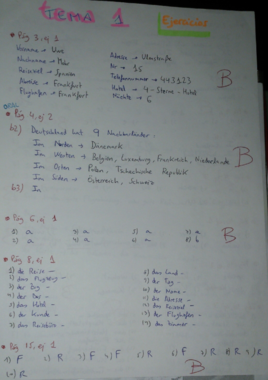 tema 1
Ejercicios
• Pág 3, ej 1
Vorname → Uwe
Nachname → Mohr
Reiseziel → Spanien
Abreise → Frankfurt
Flughafen → Frankfurt
Adresse →
Nr → 15
Telefonnummer → 443123
Hotel → 4-Sterne-Hotel
Nächte → 6
B
• Pág 4, ej 2
b2) Deutschland hat 9 Nachbarländer:
Im Norden → Dänemark
Im Westen → Belgien, Luxemburg, Frankreich, Niederlande
Im Osten → Polen, Tschechische Republik
Im Süden → Österreich, Schweiz
B
b3) In
• Pág 6, ej 1
a
a
a
a
a
a
a
b
B
• Pág 8, ej 1
1) die Reise -
2) das Flugzeug -
3) der Berg -
4) der
5) das Hotel -
6) der Kunde -
7) das Reisebüro -
das Land -
der Tag -
der Name -
die Adresse -
das Reiseziel -
der Flughafen -
der
das Zimmer -
• Pág 15, ej 1
1) F 2) R 3) F 4) F 5) R 6) F 7) R 8) R 9) R
10) R
B